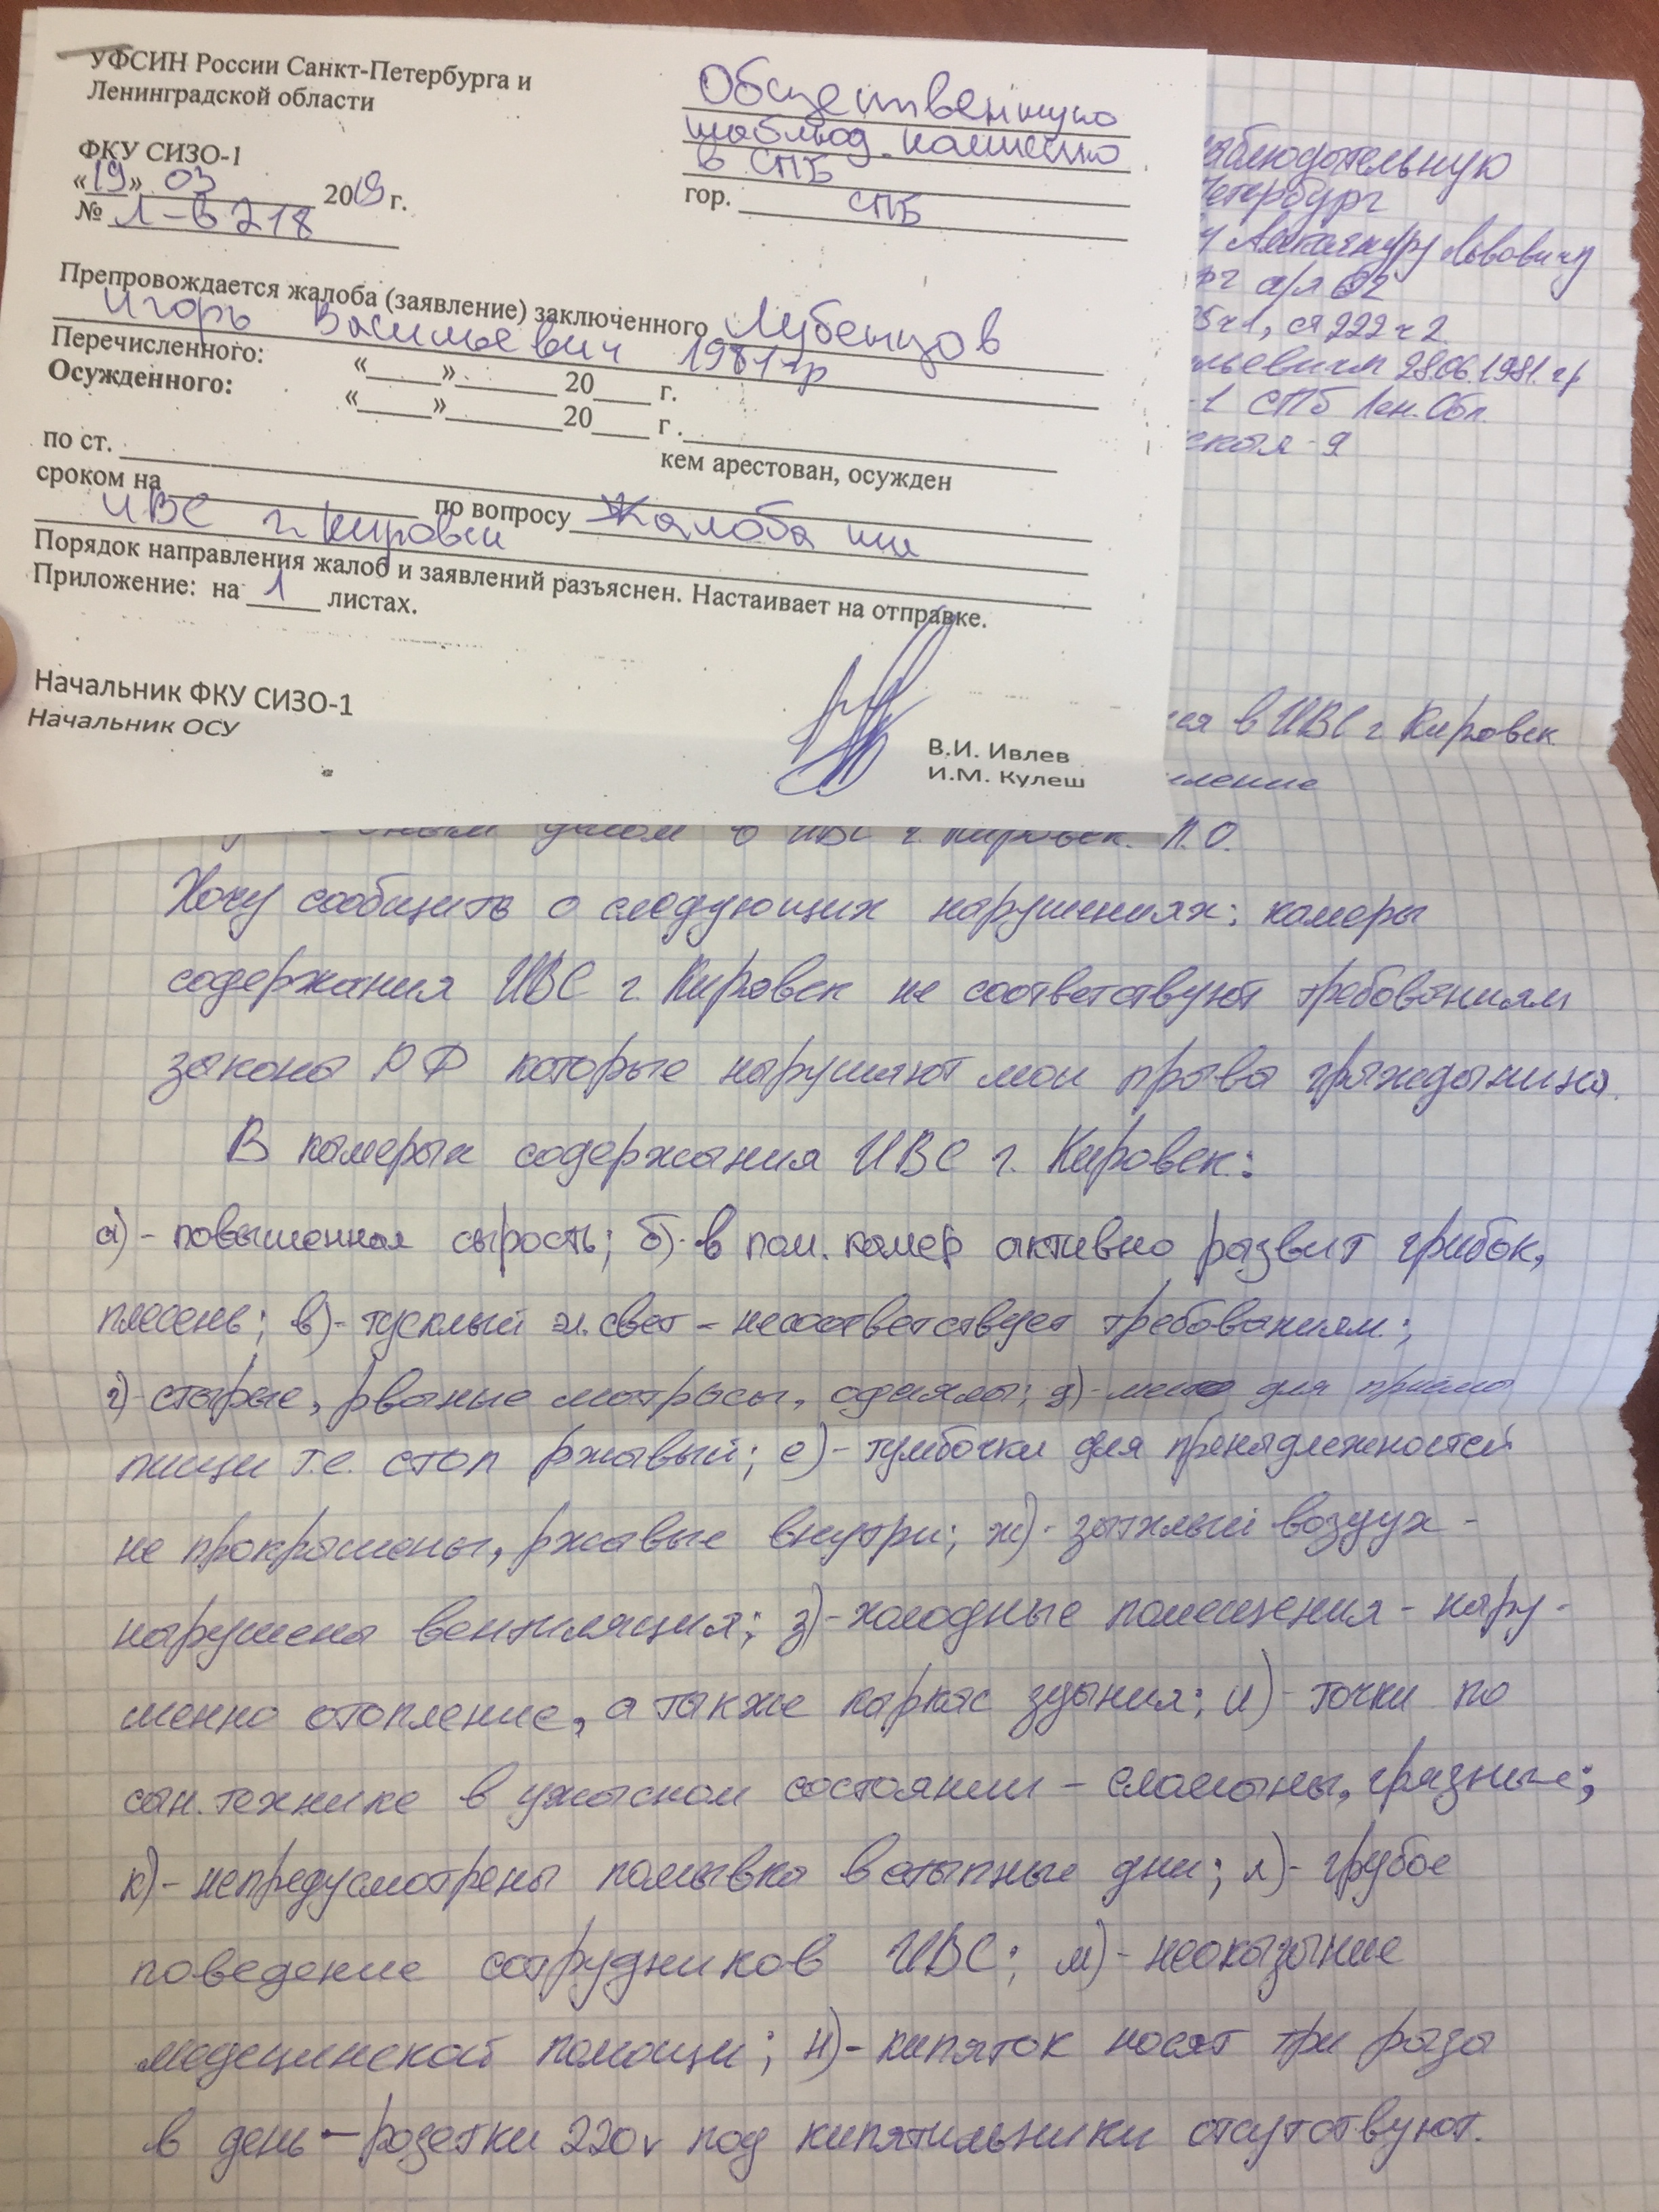 УФСИН России Санкт-Петербурга и
Ленинградской области
ФКУ СИЗО-1
«19» 03 2019 г.
№ Л-6218
Общественную
наблюд. комиссию
в СПБ
гор. СПБ
Препровождается жалоба (заявление) заключенного Лубенцов
Игорь Васильевич 1981 гр
Перечисленного: «____»________ 20____ г.
Осужденного: «____»________20____ г.
кем арестован, осужден
по ст.
сроком на по вопросу Жалоба на
ИВС г. Кировск
Порядок направления жалоб и заявлений разъяснен. Настаивает на отправке.
Приложение: на 1 листах.
Начальник ФКУ СИЗО-1
Начальник ОСУ
В.И. Ивлев
И.М. Кулеш
аблюдательную
Петербург
Александру Львовичу
а/я 62
ч1, ст 222 ч 2
льевича 28.06.1981. гр
-1 СПб Лен. Обл.
ская-9
ся в ИВС г Кировск
вление
в ИВС г. Кировск. Л.О.
Хочу сообщить о следующих нарушениях: камеры
содержания ИВС г. Кировск не соответствуют требованиям
закона РФ которые нарушают мои права гражданина.
В камерах содержания ИВС г. Кировск:
а)- повышенная сырость; б)- в пом. камер активно развит грибок,
плесень; в)- тусклый эл. свет - несоответствует требованиям.;
г)- старые, рваные матрасы, одеяла; д)- место для приёма
пищи т.е. стол ржавый; е)- тумбочки для пренадлежностей
не прокрашены, ржавые внутри; ж)- затхлый воздух -
нарушена вентиляция; з)- холодные помещения - нару-
шенно отопление, а также каркас здания; и)- точки по
сан. технике в ужасном состоянии - сломаны, грязные;
к)- непредусмотрены помывка в этапные дни; л)- грубое
поведение сотрудников ИВС; м)- неоказание
медецинской помощи; н)- кипяток носят три раза
в день - розетки 220v под кипятильники отсутствуют.